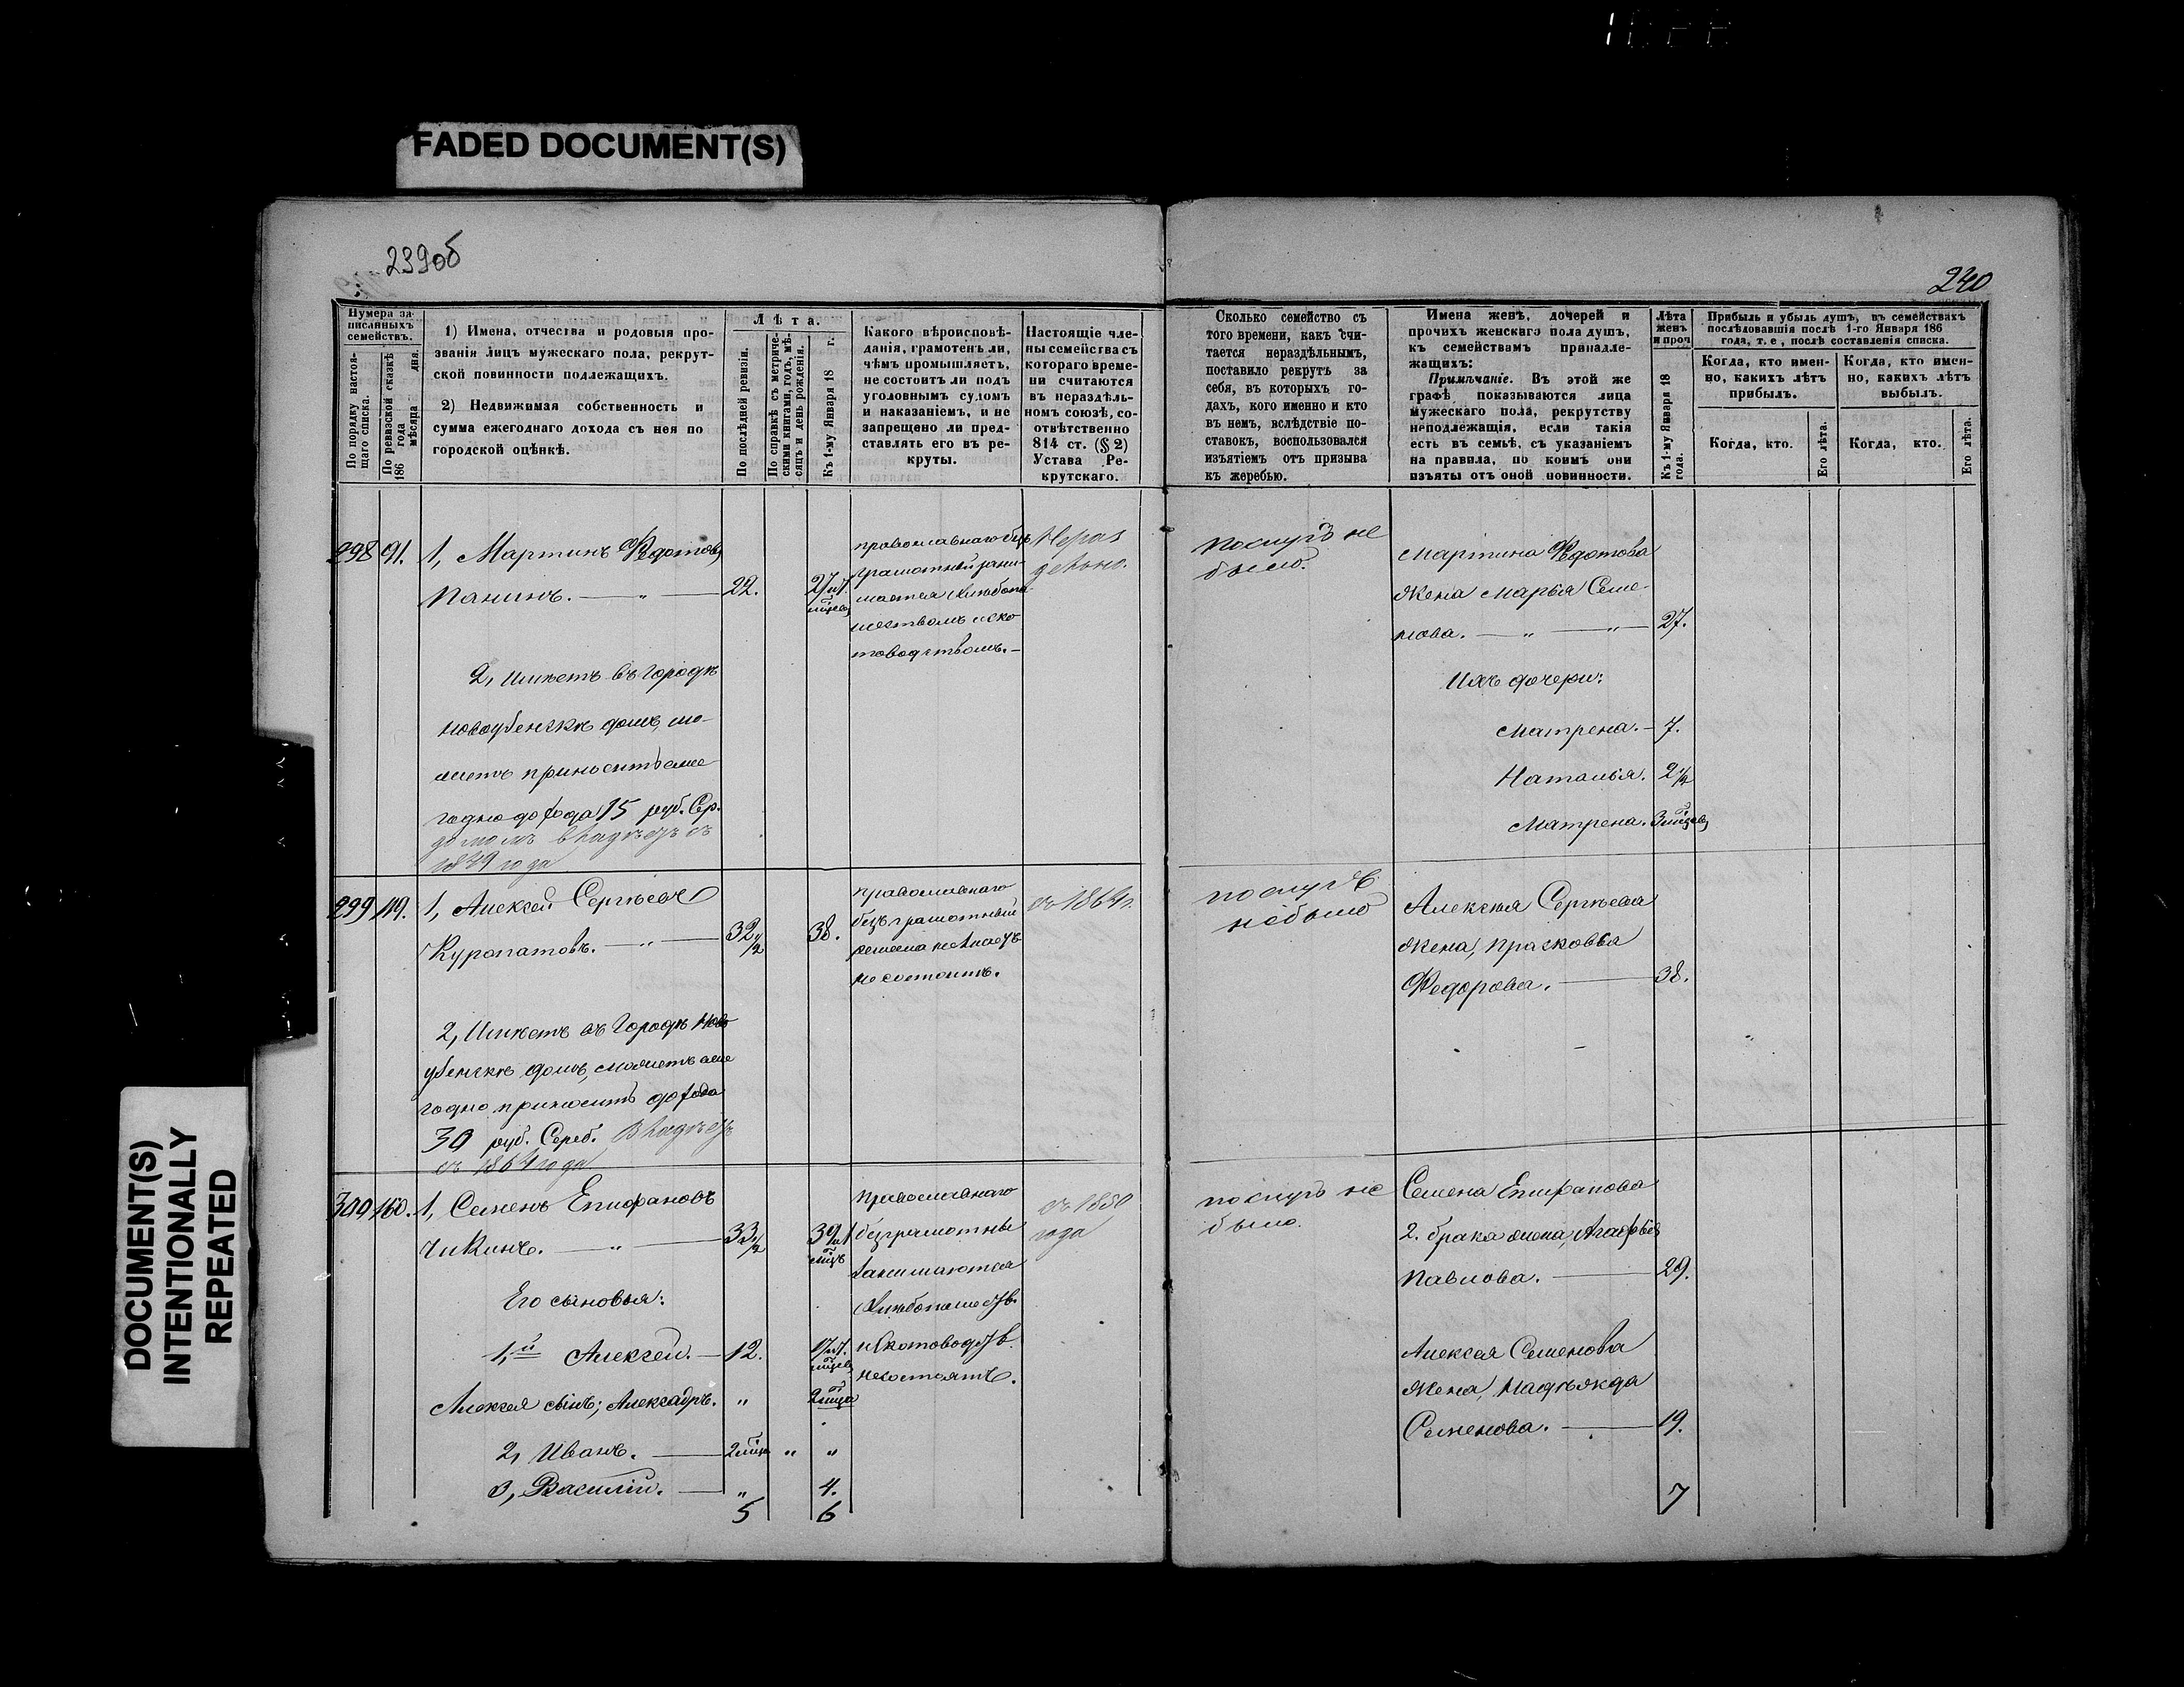 FADED DOCUMENT(S)
DOCUMENT(S)
INTENTIONALLY
REPEATED
239об
240
Нумера за-
писанныхъ
семействъ.
По порядку настоя-
щаго списка.
По ревизской сказкѣ
186 года
мѣсяца дня.
1) Имена, отчества и родовыя про-
званія лицъ мужескаго пола, рекрут-
ской повинности подлежащихъ.
2) Недвижимая собственность и
сумма ежегоднаго дохода съ нея по
городской оцѣнкѣ.
Лѣта.
По послѣдней ревизіи.
По справкѣ съ метриче-
скими книгами, годъ, мѣ-
сяцъ и день рожденія.
Къ 1-му Января 18 г.
Какого вѣроисповѣ-
данія, грамотенъ ли,
чѣмъ промышляетъ,
не состоитъ ли подъ
уголовнымъ судомъ
и наказаніемъ, и не
запрещено ли пред-
ставлять его въ ре-
круты.
Настоящіе чле-
ны семейства съ
котораго време-
ни считаются
въ нераздѣль-
номъ союзѣ, со-
отвѣтственно
814 ст. (§ 2)
Устава Ре-
крутскаго.
Сколько семейство съ
того времени, какъ счи-
тается нераздѣльнымъ,
поставило рекрутъ за
себя, въ которыхъ го-
дахъ, кого именно и кто
въ немъ, вслѣдствіе по-
ставокъ, воспользовался
изъятіемъ отъ призыва
къ жеребью.
Имена женъ, дочерей и
прочихъ женскаго пола душъ,
къ семействамъ принадле-
жащихъ:
Примѣчаніе. Въ этой же
графѣ показываются лица
мужескаго пола, рекрутству
неподлежащія, если такія
есть въ семьѣ, съ указаніемъ
на правила, по коимъ они
изъяты отъ оной повинности.
Лѣта
женъ
и проч.
Къ 1-му Января 18
года.
Прибыль и убыль душъ, въ семействахъ
послѣдовавшія послѣ 1-го Января 186
года, т. е., послѣ составленія списка.
Когда, кто имен-
но, какихъ лѣтъ
прибылъ.
Когда, кто имен-
но, какихъ лѣтъ
выбылъ.
Когда, кто.
Его лѣта.
Когда, кто.
Его лѣта.
298 91. 1, Мартинъ Федотовъ
Панинъ. — „ — 22.
2, Имѣетъ въ Городѣ
Новоузенскѣ домъ, мо-
жетъ приносить еже
годно дохода 15 руб. Сер.
домомъ владѣетъ съ
года
православнаго без
грамотный зани-
мается хлѣбопа
шествомъ и ско
товодствомъ.—
Нераз
дѣльно.
поступъ не
было.
Мартина Федотова
Жена Марья Семе-
нова. — „ — „ — 27.
Ихъ дочери:
Матрена. — 7.
Наталья. 2½
Матрена. 3
299 119. 1, Алексей Сергѣевъ
Куропатовъ. — „ — 32½ 38.
2, Имѣетъ въ Городѣ Ново
узенскѣ домъ, можетъ еже
годно приносить дохода
30 руб. Сереб. Владѣетъ
съ 1864 года
православнаго
безъграмотный
не состоитъ.
съ 1864 г.
не было
Алексѣя Сергѣева
Жена, Прасковья
Федорова. — 38.
300 160. 1, Семенъ Епифановъ
Чикинъ. — „ — 33½
Его сыновья:
1,й Алексей. — 12.
Алексея сынъ; Александръ. „
2, Иванъ. — „ „
3, Василій. — „ 4.
5 6
православнаго
безграмотны
занимаются
хлѣбопашеств.
и Скотоводств.
несостоятъ.
съ 1850
года
не
было.
Семена Епифанова
2. брака жена, Агафья
Павлова. — 29.
Алексея Семенова
Жена, Надѣжда
Семенова. — 19.
7